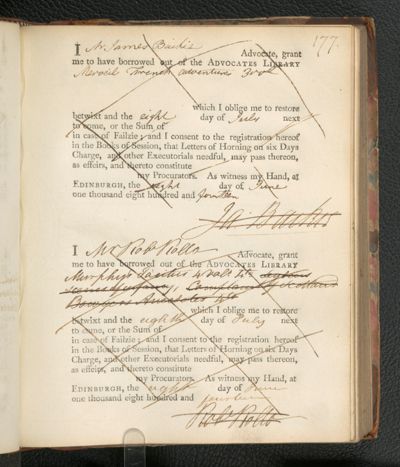 177.
I Mr James Advocate, grant
me to have borrowed out of the ADVOCATES LIBRARY
adventures
which I oblige me to restore
betwixt and the eight day of July next
to come, or the Sum of
in case of Failzie; and I consent to the registration hereof
in the Books of Session, that Letters of Horning on six Days
Charge, and other Executorials needful, may pass thereon,
as effeirs, and thereto constitute
my Procurators. As witness my Hand, at
EDINBURGH, the eight day of June
one thousand eight hundred and fourteen
I Mr Robt Rollo Advocate, grant
me to have borrowed out of the ADVOCATES LIBRARY
Murphy's Tacitus 4 vols 4to
which I oblige me to restore
betwixt and the eighth day of July next
to come, or the Sum of
in case of Failzie; and I consent to the registration hereof
in the Books of Session, that Letters of Horning on six Days
Charge, and other Executorials needful, may pass thereon,
as effeirs, and thereto constitute
my Procurators. As witness my Hand, at
EDINBURGH, the eight day of June
one thousand eight hundred and fourteen
Robt Rollo